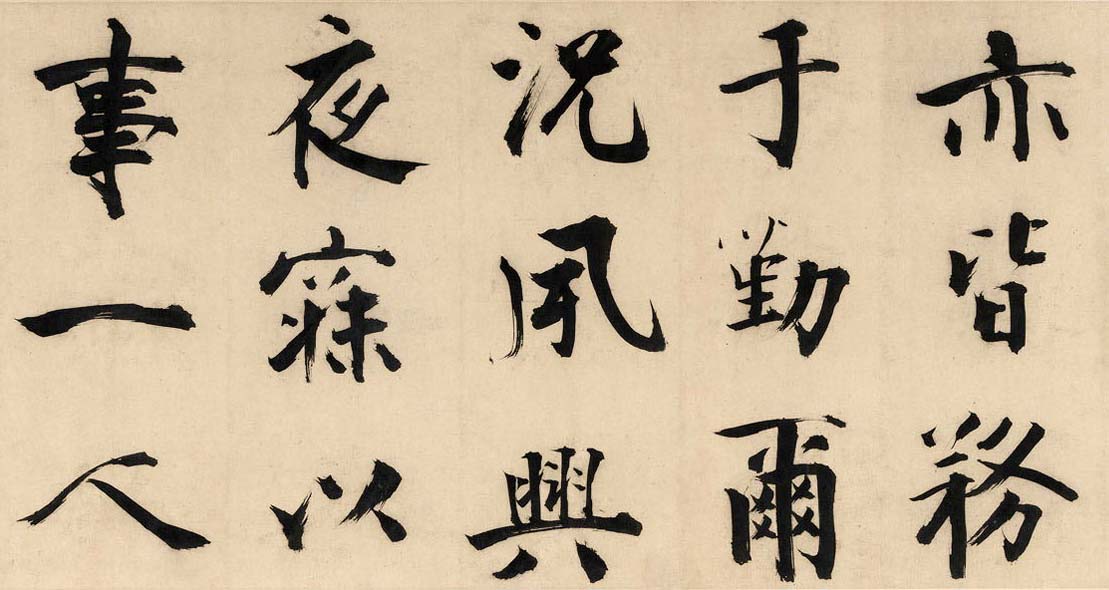 亦皆務
于勤爾
況夙興
夜寐以
事一人